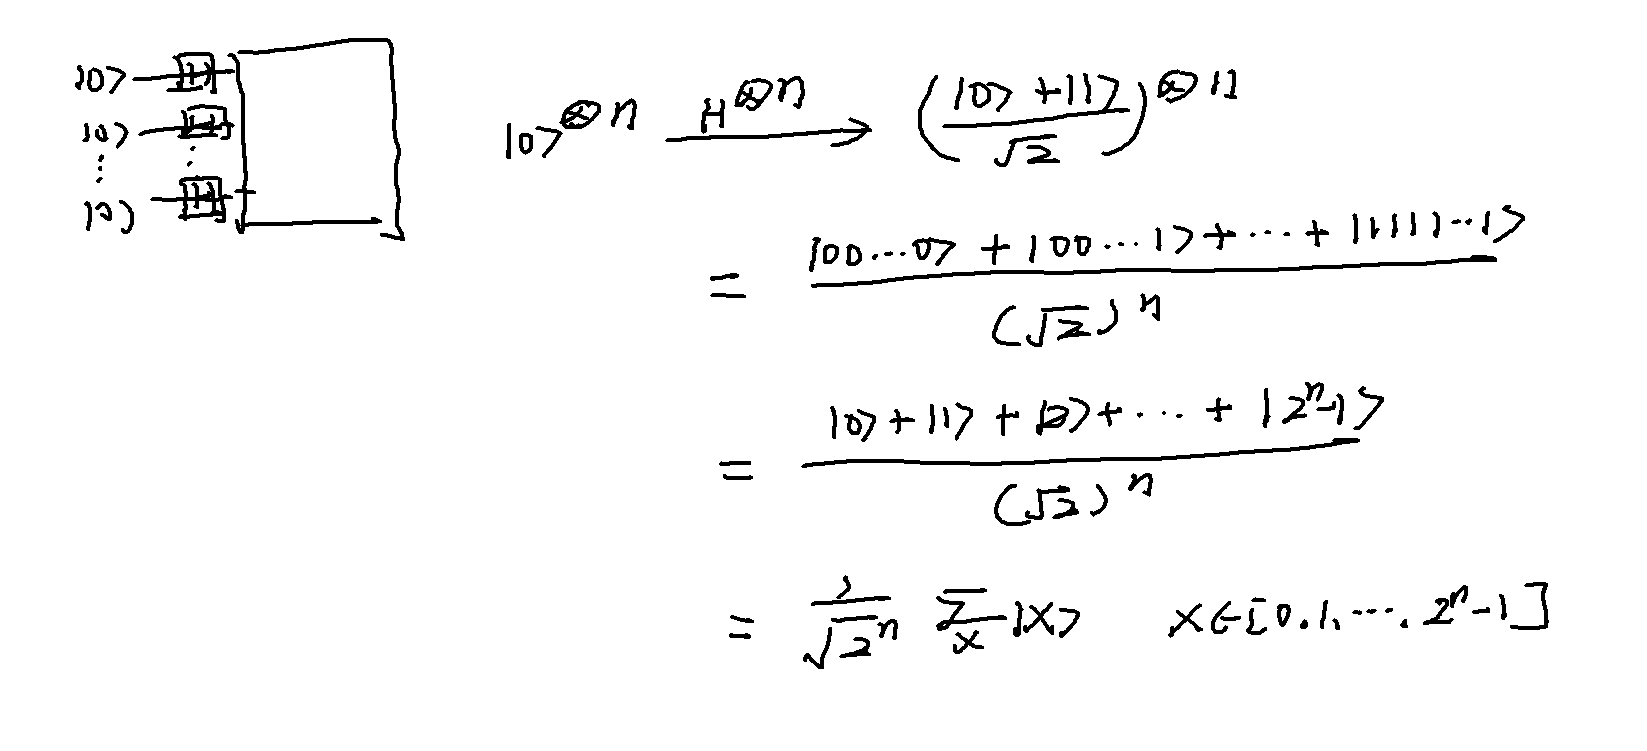 |0⟩ H
|0⟩ H
⋮ ⋮
|0⟩ H
|0⟩^{⊗n} \xrightarrow{H^{⊗n}} (\frac{|0⟩+|1⟩}{√2})^{⊗n}
= \frac{|00...0⟩ + |00...1⟩ + ... + |1111...1⟩}{(√2)^n}
= \frac{|0⟩ + |1⟩ + |2⟩ + ... + |2^n-1⟩}{(√2)^n}
= \frac{1}{√2^n} \sum_x |x⟩ x ∈ [0, 1, ..., 2^n - 1]